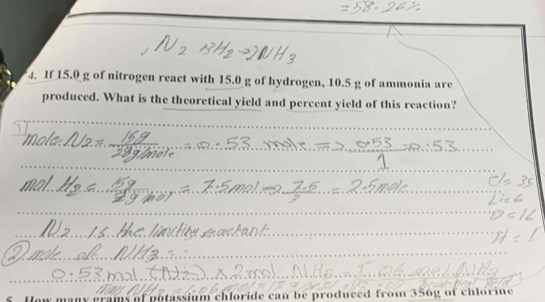 = 58.26%
, N2 +3H2 → 2NH3
4. If 15.0 g of nitrogen react with 15.0 g of hydrogen, 10.5 g of ammonia are
produced. What is the theoretical yield and percent yield of this reaction?
1
mole N2 = 15g / 28g/mole = 0.53 mole => 0.53 / 1 = 0.53
mol H2 = 15g / 2g mol = 7.5 mol => 7.5 / 3 = 2.5 mole
Cl = 35
Li = 6
O = 16
H = 1
N2 is the limiting reactant
② mole of NH3 =
0.53 mol (N2) x 2 mol NH3 = 1.06 mol NH3
5. How many grams of potassium chloride can be produced from 356g of chlorine